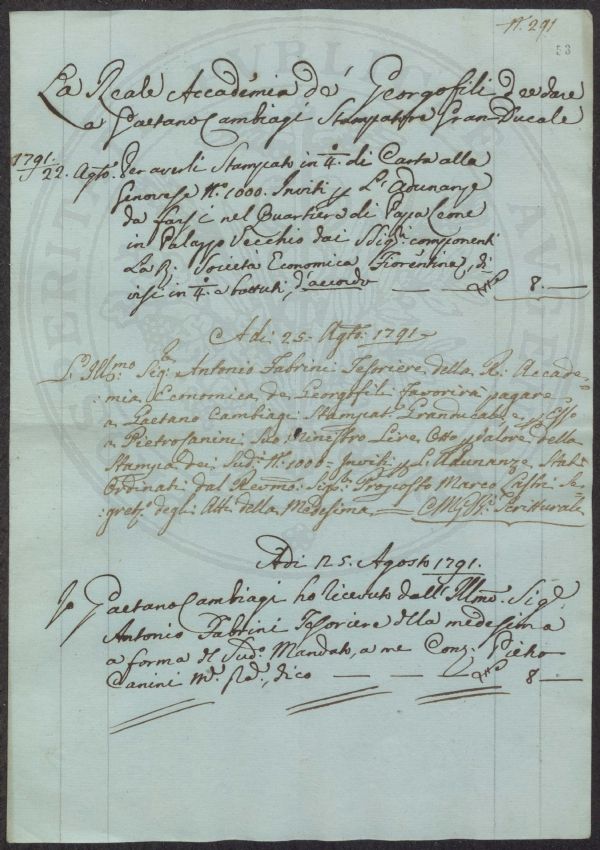 N.° 291
53
La Reale Accadémia de' Georgofili deve dare
a Gaetano Cambiagi Stampatore Gran-Ducale
1791.
22. Agto. Per averli Stampato in 4.° di Carta alla
Genovese N.° 1000. Inviti p L'adunanze
da farsi nel Quartiere di Papa Leone
in Palazzo Vecchio dai SSigri. componenti
La R. Societa Economica Fiorentina, di
visi in 4.° e battuti, d'acordo — — 8. —
Adi 25. Agto. 1791
L'Illmo. Sigr. Antonio Fabrini Tesoriere della Rl. Accade=
mia Economica de Georgofili favorirà pagare
a Gaetano Cambiagi Stampat. Granducale, e p Esso
a Pietro Canini Suo Ministro Lire Otto p valore della
Stampa dei Sudi. N.° 1000= Inviti p L'Adunanze Stati
Ordinati dal Revmo. Sigr. Proposto Marco Lastri Se=
gret.° degli Atti della Medesima — Scritturale
Adi 25. Agosto 1791.
Io Gaetano Cambiagi ho ricevuto dall'Illmo. Sigr.
Antonio Fabrini Tesoriere della medesima
a forma del Sud.° Mandato, a me Cont. Pietro
Canini M.° Rd.°, dico — — — 8 —